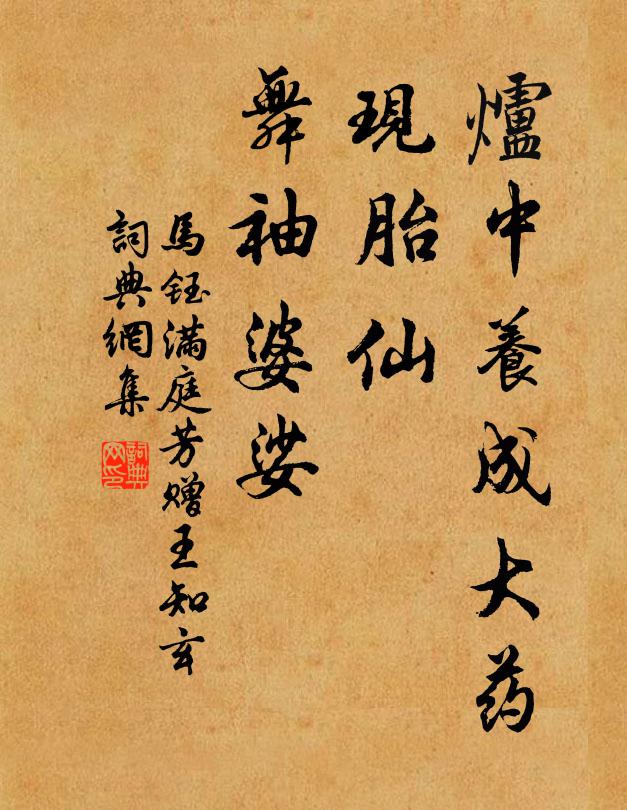 爐中養成大药
現胎仙
舞袖婆娑
馬鈺滿庭芳赠王知玄
詞典網集
詞典网印